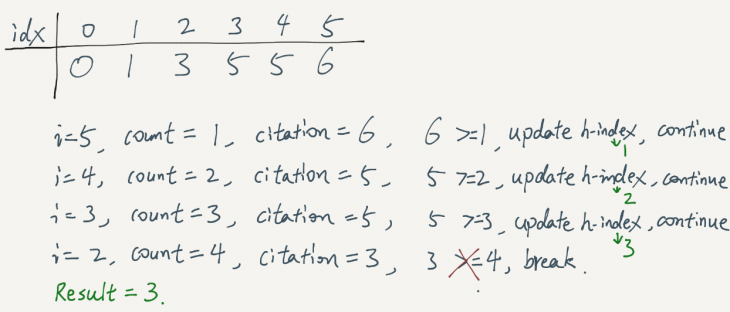 idx 0 1 2 3 4 5
0 1 3 5 5 6
i=5, count = 1, citation = 6, 6 >=1, update h-index, continue
1
i=4, count = 2, citation = 5, 5 >=2, update h-index, continue
2
i=3, count=3, citation=5, 5 >=3, update h-index, continue
3
i=2, count=4, citation=3, 3 >=4, break.
Result = 3.